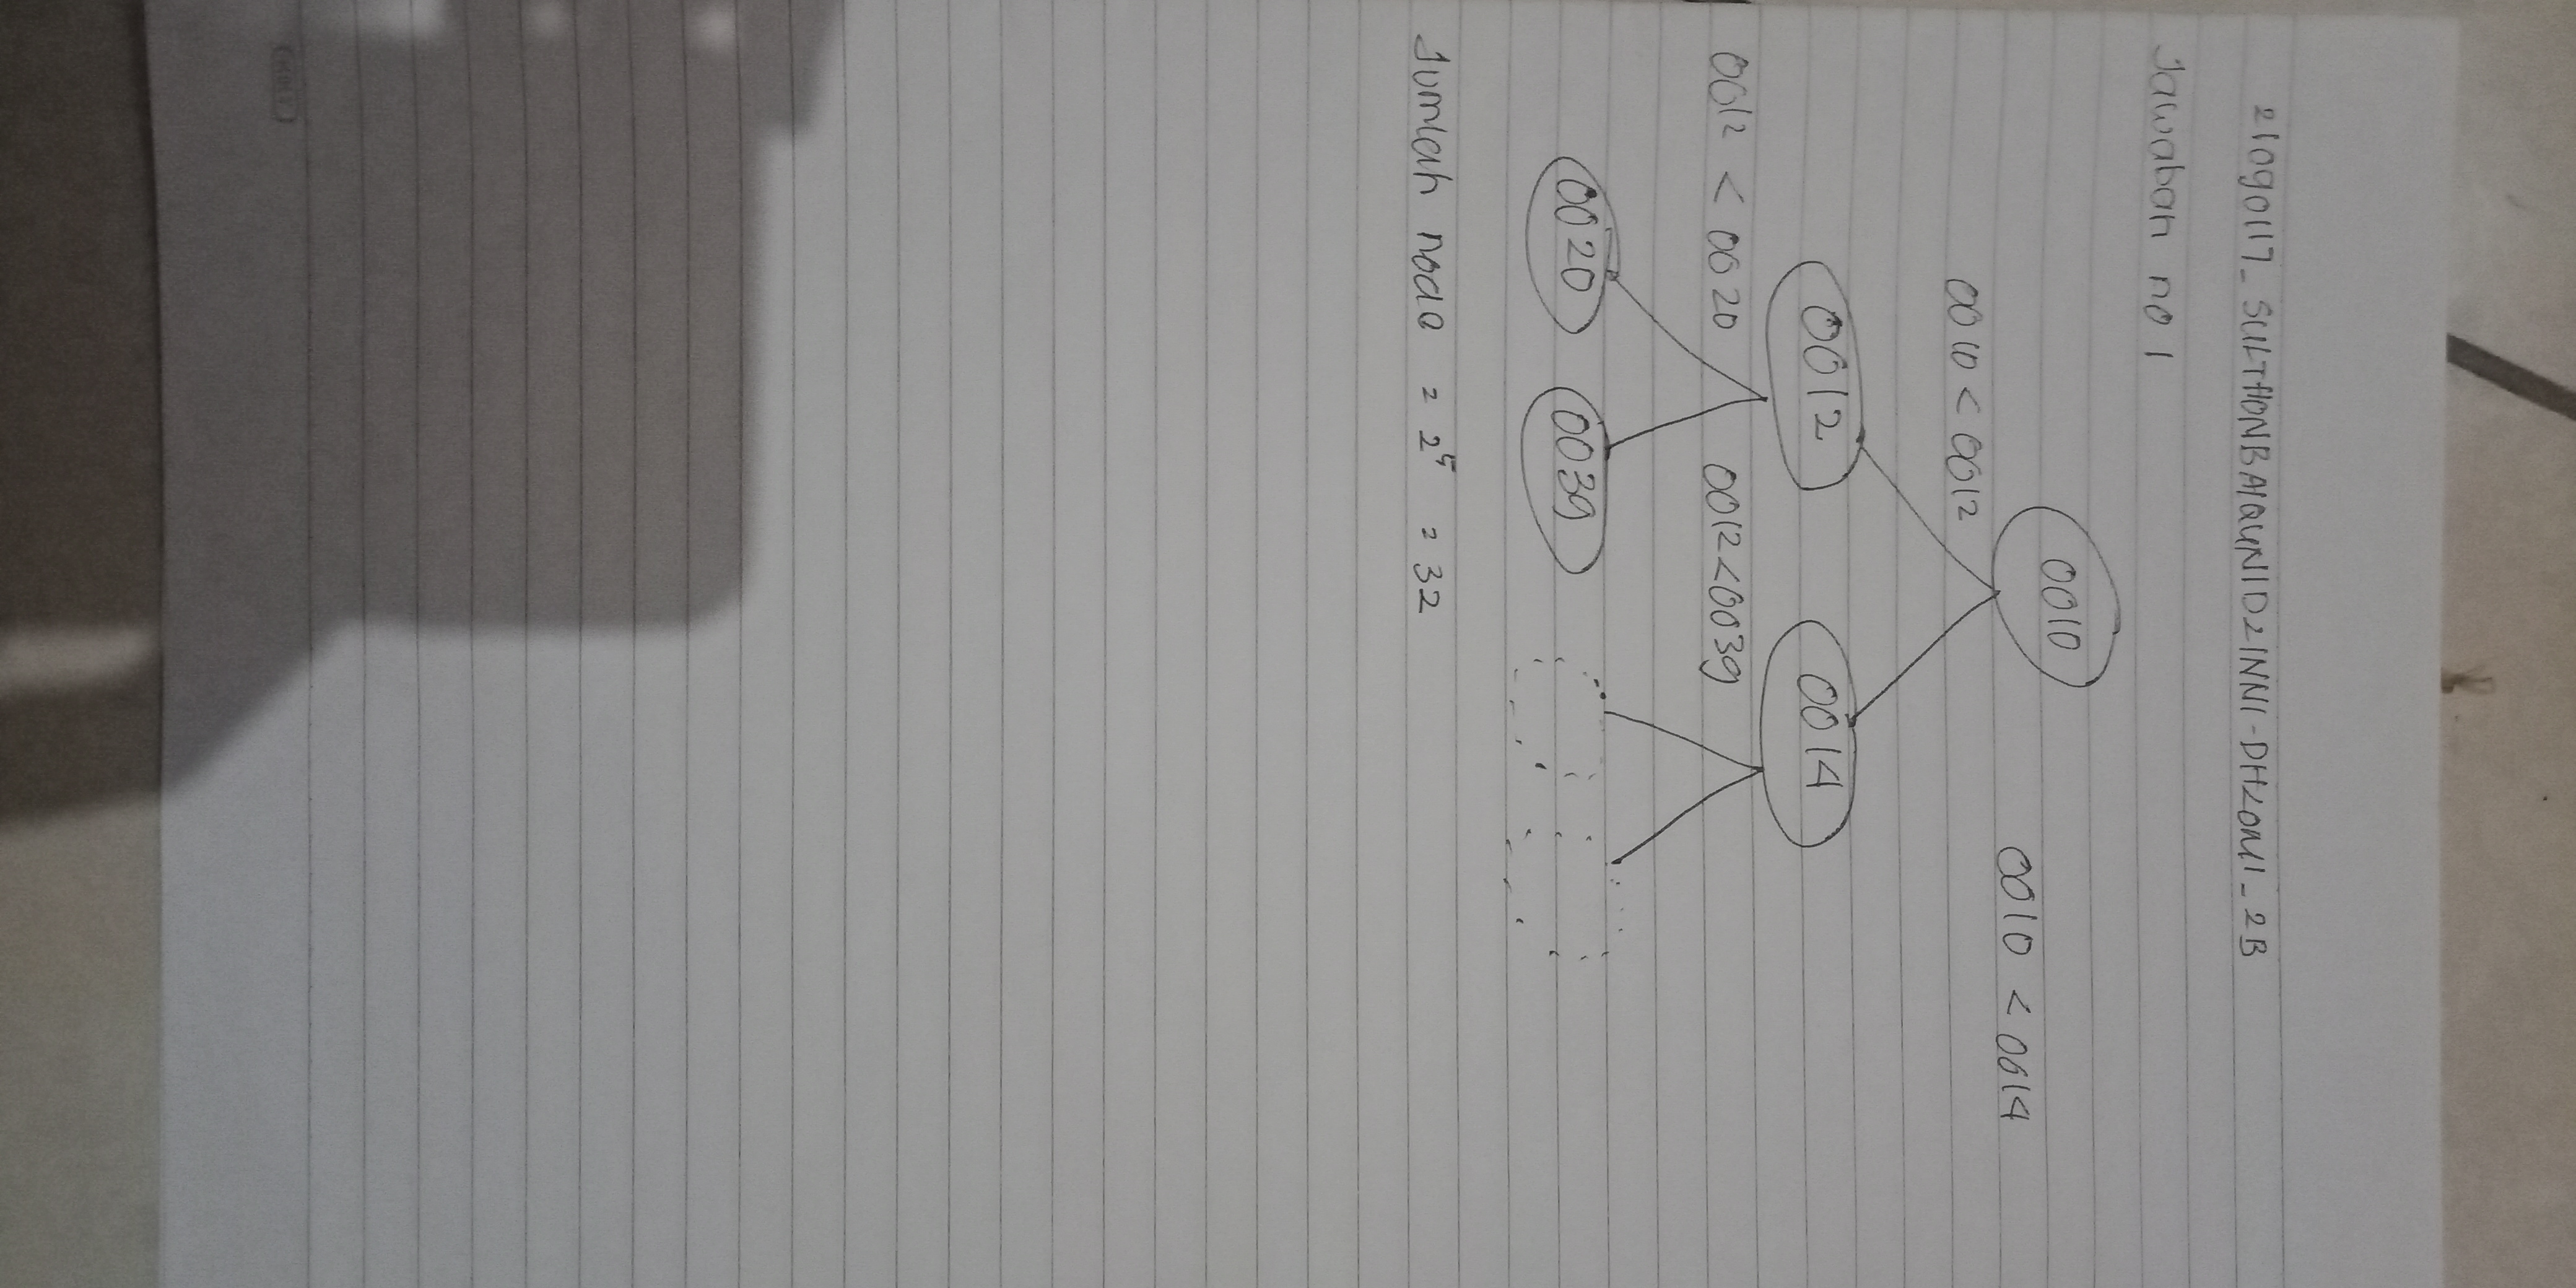 21090117_SULTHONBAIQUNIDZINNI-DHZOMI_2B
Jawaban no 1
0010
0010 < 0014
0010 < 0012
0012
0014
0012 < 0020
0012<0039
0020
0039
Jumlah node = 2⁵ = 32